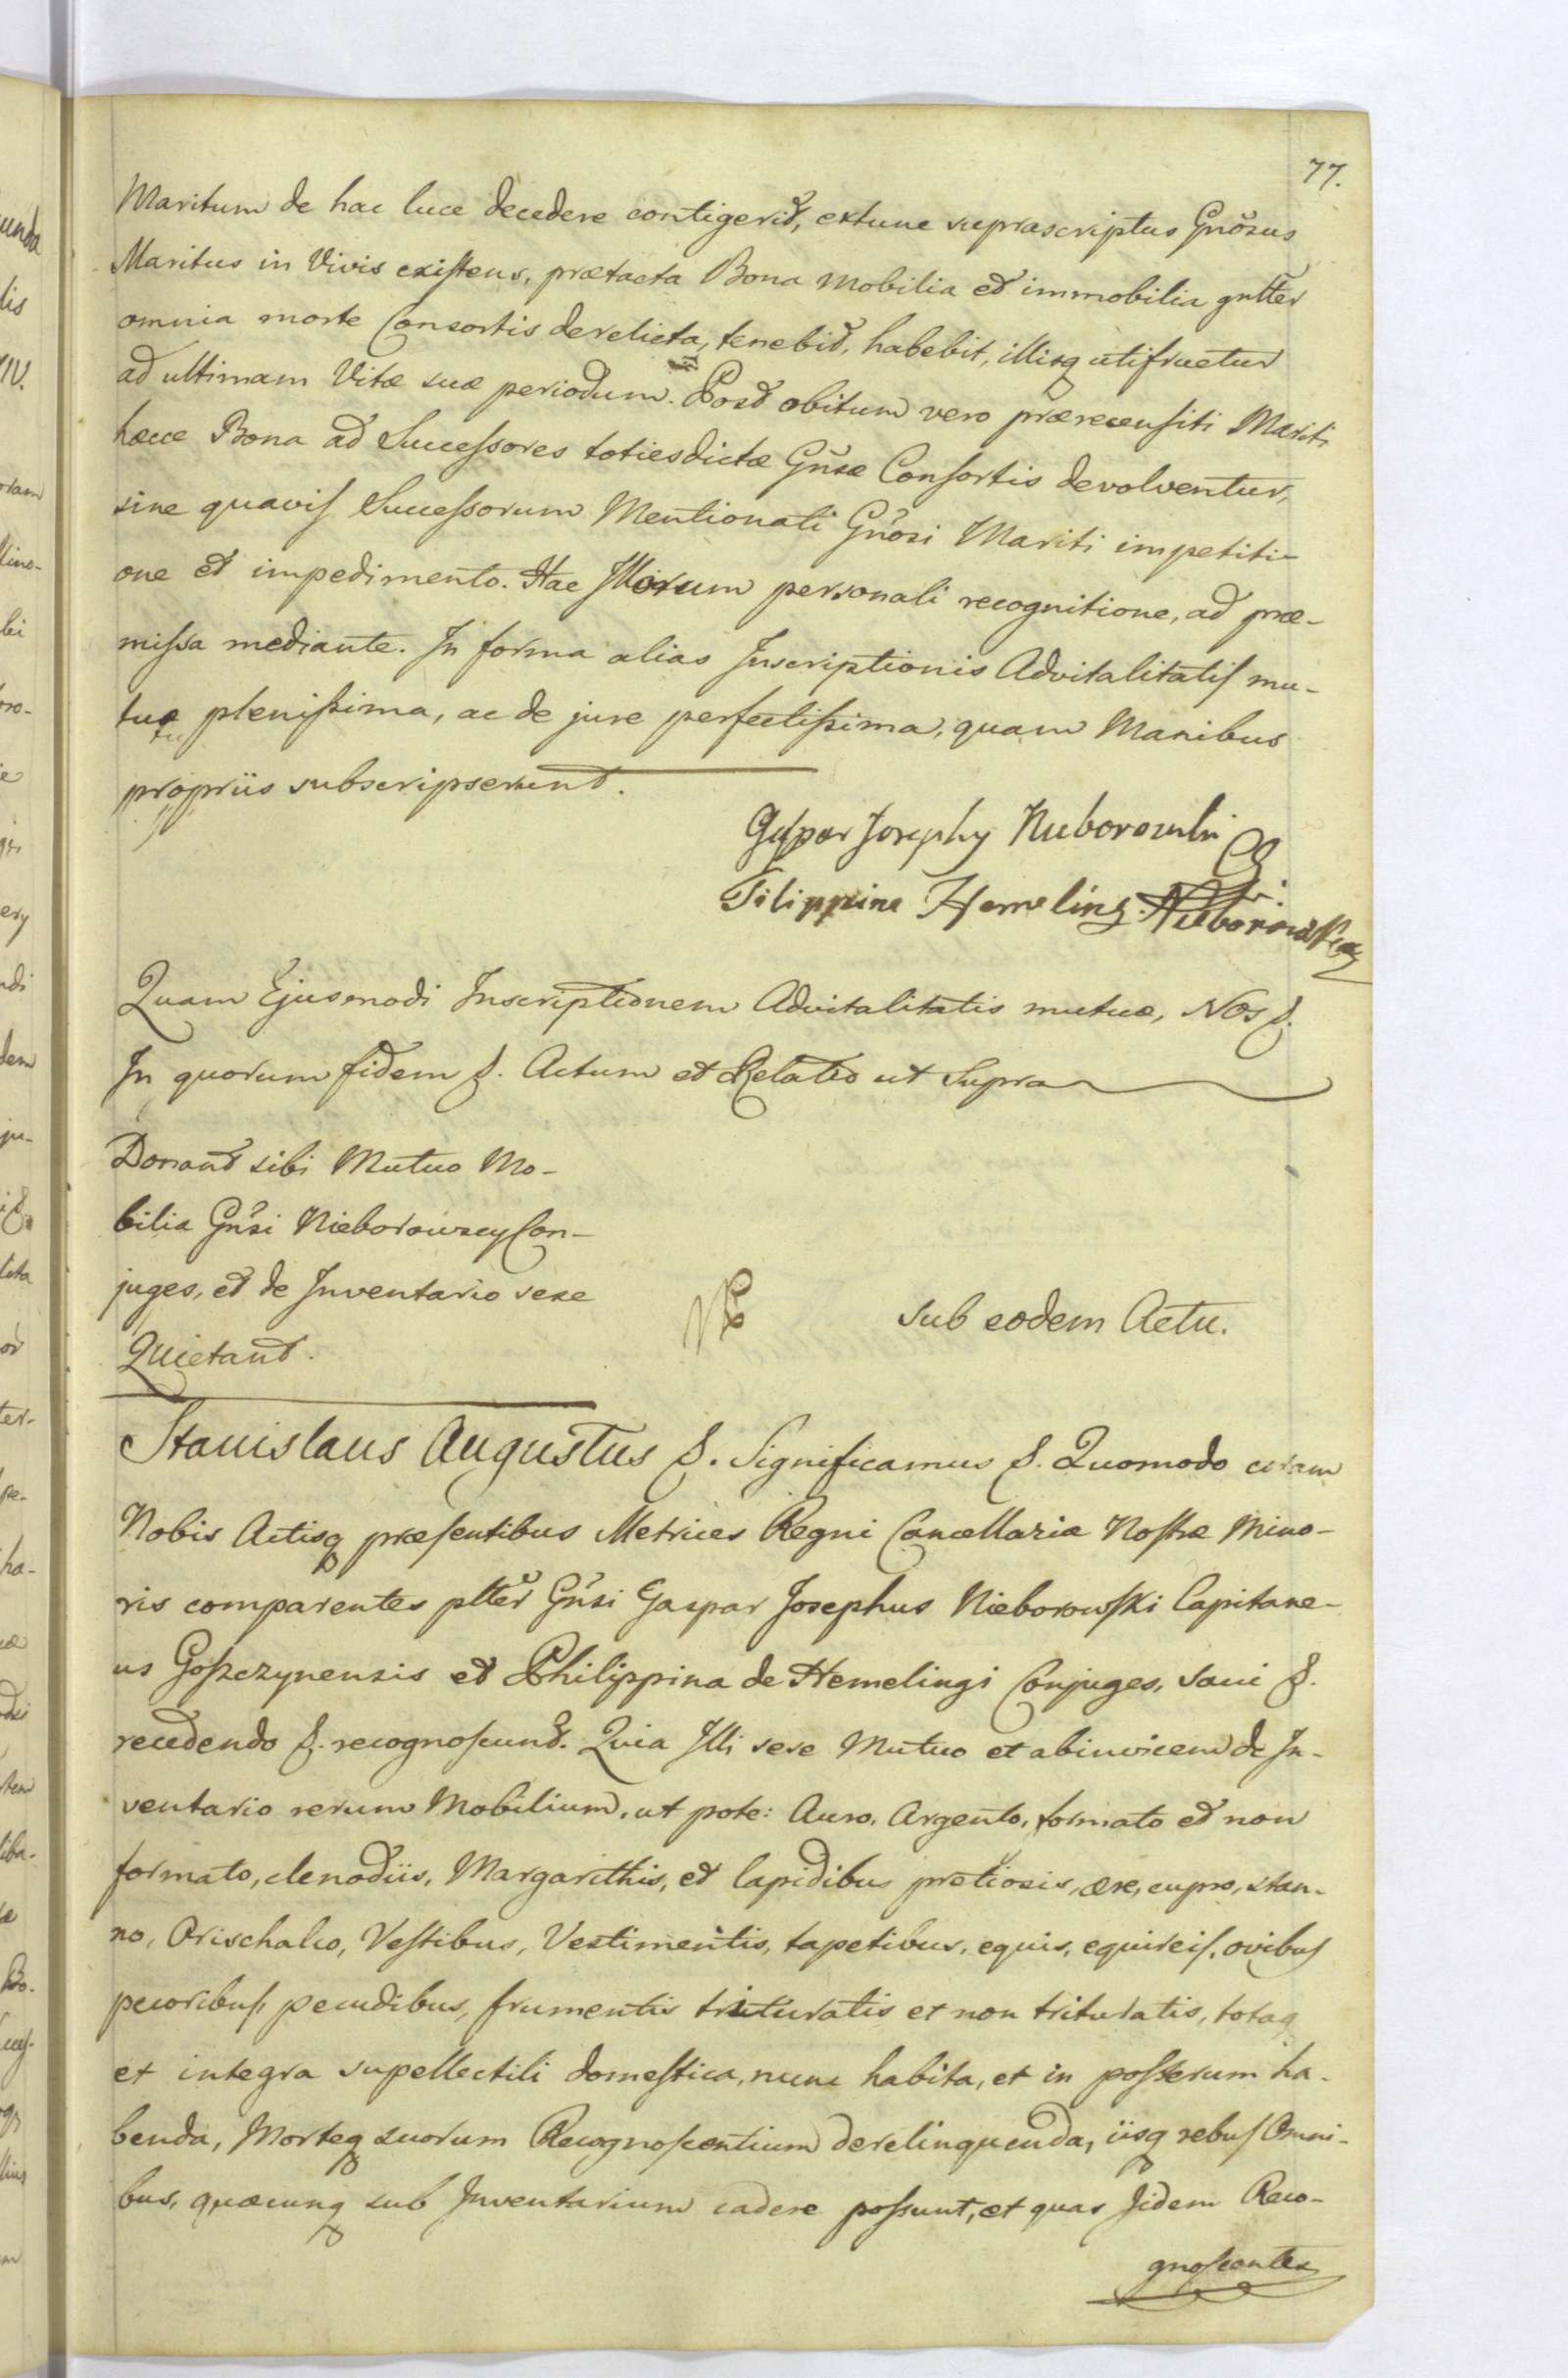 77.
Maritum de hac luce decedere contigerit, extunc suprascriptus Gnõsus
Maritus in Vivis existens, prætacta Bona Mobilia et immobilia gnlter
omnia morte Consortis derelicta, tenebit, habebit, illisq utifruetur
ad ultimam Vitæ suæ periodum. Post obitum vero prærecensiti Mariti
hæcce Bona ad Successores totiesdictæ Gñsæ Consortis devolventur,
sine quavis Successorum Mentionati Gñosi Mariti impetiti-
one et impedimento. Hac Illorum personali recognitione, ad præ-
missa mediante. In forma alias Inscriptionis Advitalitatis mu-
tuæ plenissima, ac de jure perfectissima, quam Manibus
propriis subscripserunt.
Gaspar Josephy Nieborowski
Filippina Hemeling Nieborowska
Quam Ejusmodi Inscriptionem Advitalitatis mutuæ, Nos &.
In quorum fidem &. Actum et Relatio ut Supra
Donant sibi Mutuo Mo-
bilia Gñsi Nieborowscy Con-
juges, et de Inventario sese
Quietant.
sub eodem Actu.
Stanislaus Augustus &. Significamus &. Quomodo coram
Nobis Actisq præsentibus Metrices Regni Cancellariæ Nostræ Mino-
ris comparentes plter Gñsi Gaspar Josephus Nieborowski Capitane-
us Goszczynensis et Philippina de Hemelingi Conjuges, sani &.
recedendo &. recognoscunt. Quia Illi sese Mutuo et abinvicem de In-
ventario rerum Mobilium, ut pote: Auro, Argento, formato et non
formato, clenodiis, Margarithis, et lapidibus pretiosis, ære, cupro, stan-
no, Orischalco, Vestibus, Vestimentis, tapetibus, equis, equireis, ovibus
pecoribus, pecudibus, frumentis trituratis et non trituratis, totaq
et integra supellectili domestica, nunc habita, et in posterum ha-
benda, Morteq suorum Recognoscentium derelinquenda, iisq rebus Omni-
bus, quæcunq sub Inventarium cadere possunt, et quas Iidem Reco-
gnoscentes